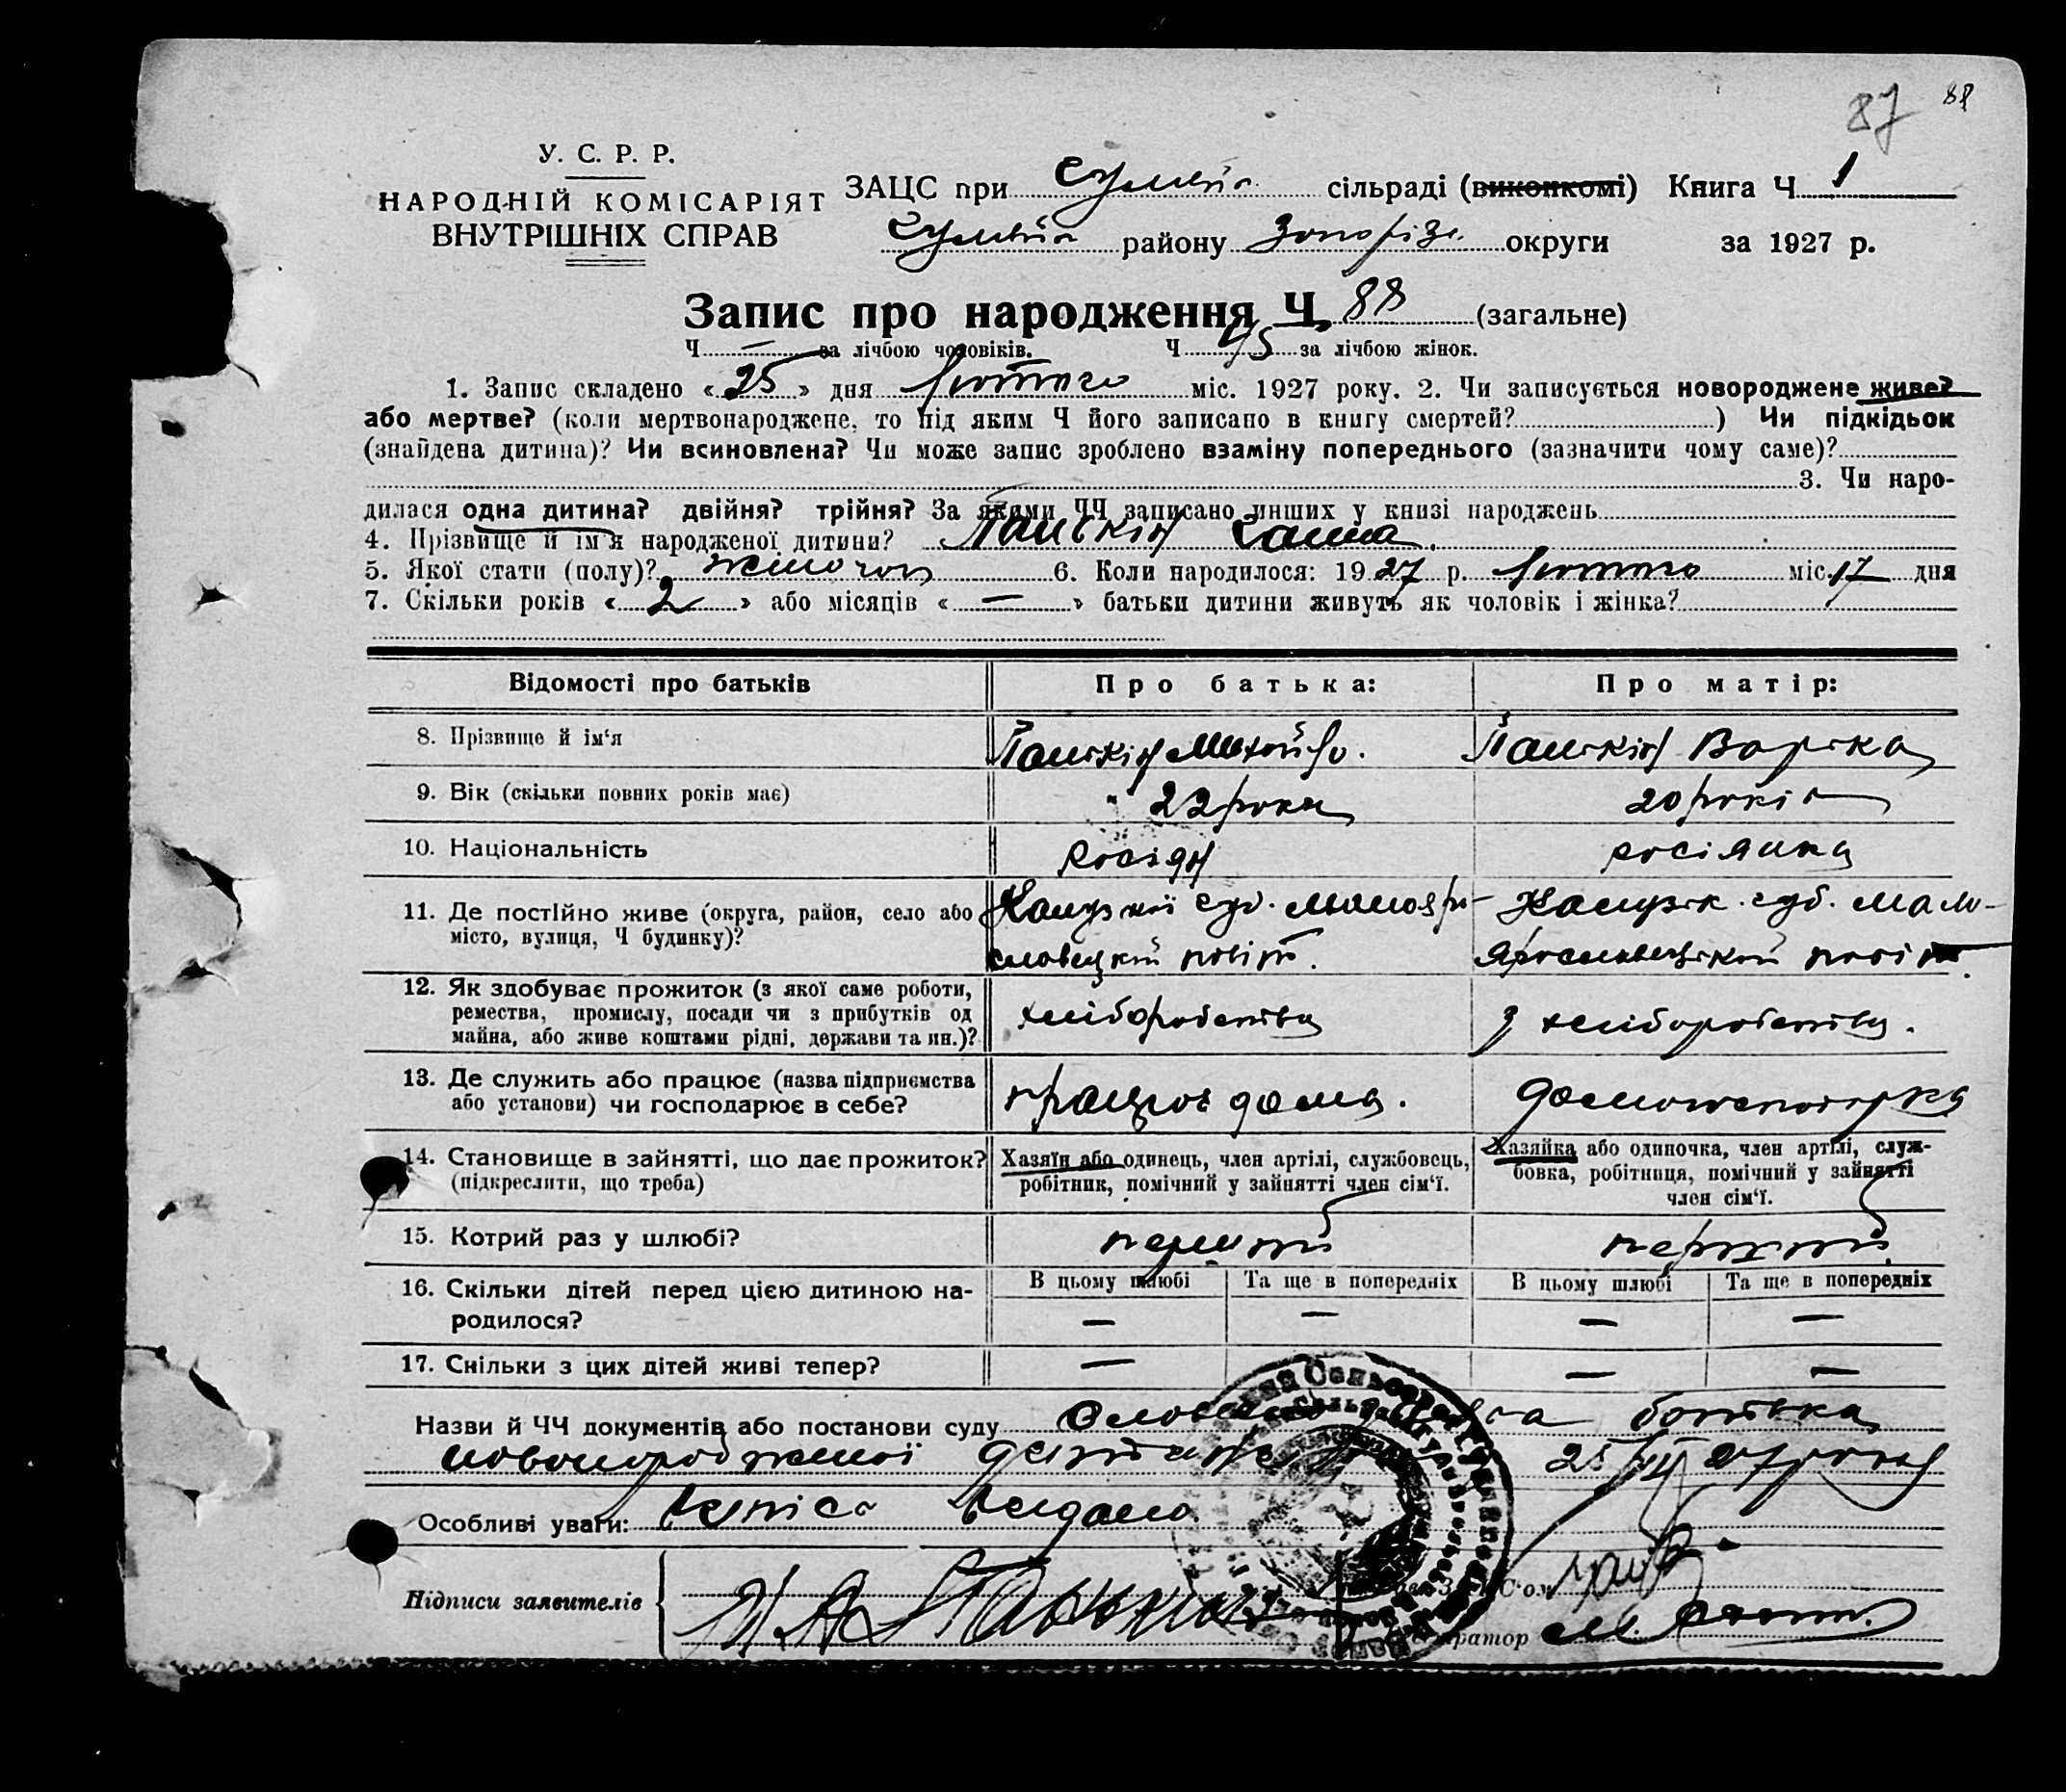 87 88
У. С. Р. Р.
НАРОДНІЙ КОМІСАРІЯТ
ВНУТРІШНІХ СПРАВ
ЗАЦС при сільраді (виконкомі) Книга Ч. 1
району округи за 1927 р.
Запис про народження Ч. 88 (загальне)
Ч. — за лічбою чоловіків. Ч. 45 за лічбою жінок.
1. Запис складено « 25 » дня лютого міс. 1927 року. 2. Чи записується новороджене живе?
або мертве? (коли мертвонароджене, то під яким Ч його записано в книгу смертей? ) Чи підкідьок
(знайдена дитина)? Чи всиновлена? Чи може запис зроблено взаміну попереднього (зазначити чому саме)?
3. Чи наро-
дилася одна дитина? двійня? трійня? За якими ЧЧ записано инших у книзі народжень
4. Прізвище й ім'я народженої дитини? Панькін Ганна.
5. Якої стати (полу)? 6. Коли народилося: 1927 р. лютого міс. 17 дня
7. Скільки років « 2 » або місяців « — » батьки дитини живуть як чоловік і жінка?
Відомості про батьків Про батька: Про матір:
8. Прізвище й ім'я Панькін Михайло. Панькін Варька
9. Вік (скільки повних років має) 22 роки 20 років
10. Національність Росіян росіянка
11. Де постійно живе (округа, район, село або Калузької губ. Малояро- Калузьк. губ. Мало-
місто, вулиця, Ч будинку)? славецкий повіт. Ярославецький повіт.
12. Як здобуває прожиток (з якої саме роботи,
ремества, промислу, посади чи з прибутків од хліборобства з хліборобства.
майна, або живе коштами рідні, держави та ин.)?
13. Де служить або працює (назва підприємства працює дома. домогосподарка
або установи) чи господарює в себе?
14. Становище в зайнятті, що дає прожиток? Хазяїн або одинець, член артілі, службовець, Хазяйка або одиночка, член артілі, служ-
(підкреслити, що треба) робітник, помічний у зайнятті член сім'ї. бовка, робітниця, помічний у зайнятті
член сім'ї.
15. Котрий раз у шлюбі? перший перший
В цьому шлюбі Та ще в попередніх В цьому шлюбі Та ще в попередніх
16. Скільки дітей перед цією дитиною на- — — — —
родилося?
17. Скільки з цих дітей живі тепер? — — —
Назви й ЧЧ документів або постанови суду батька
новонародженої 25/II 27 року
Особливі уваги: копію видано
Підписи заявителів